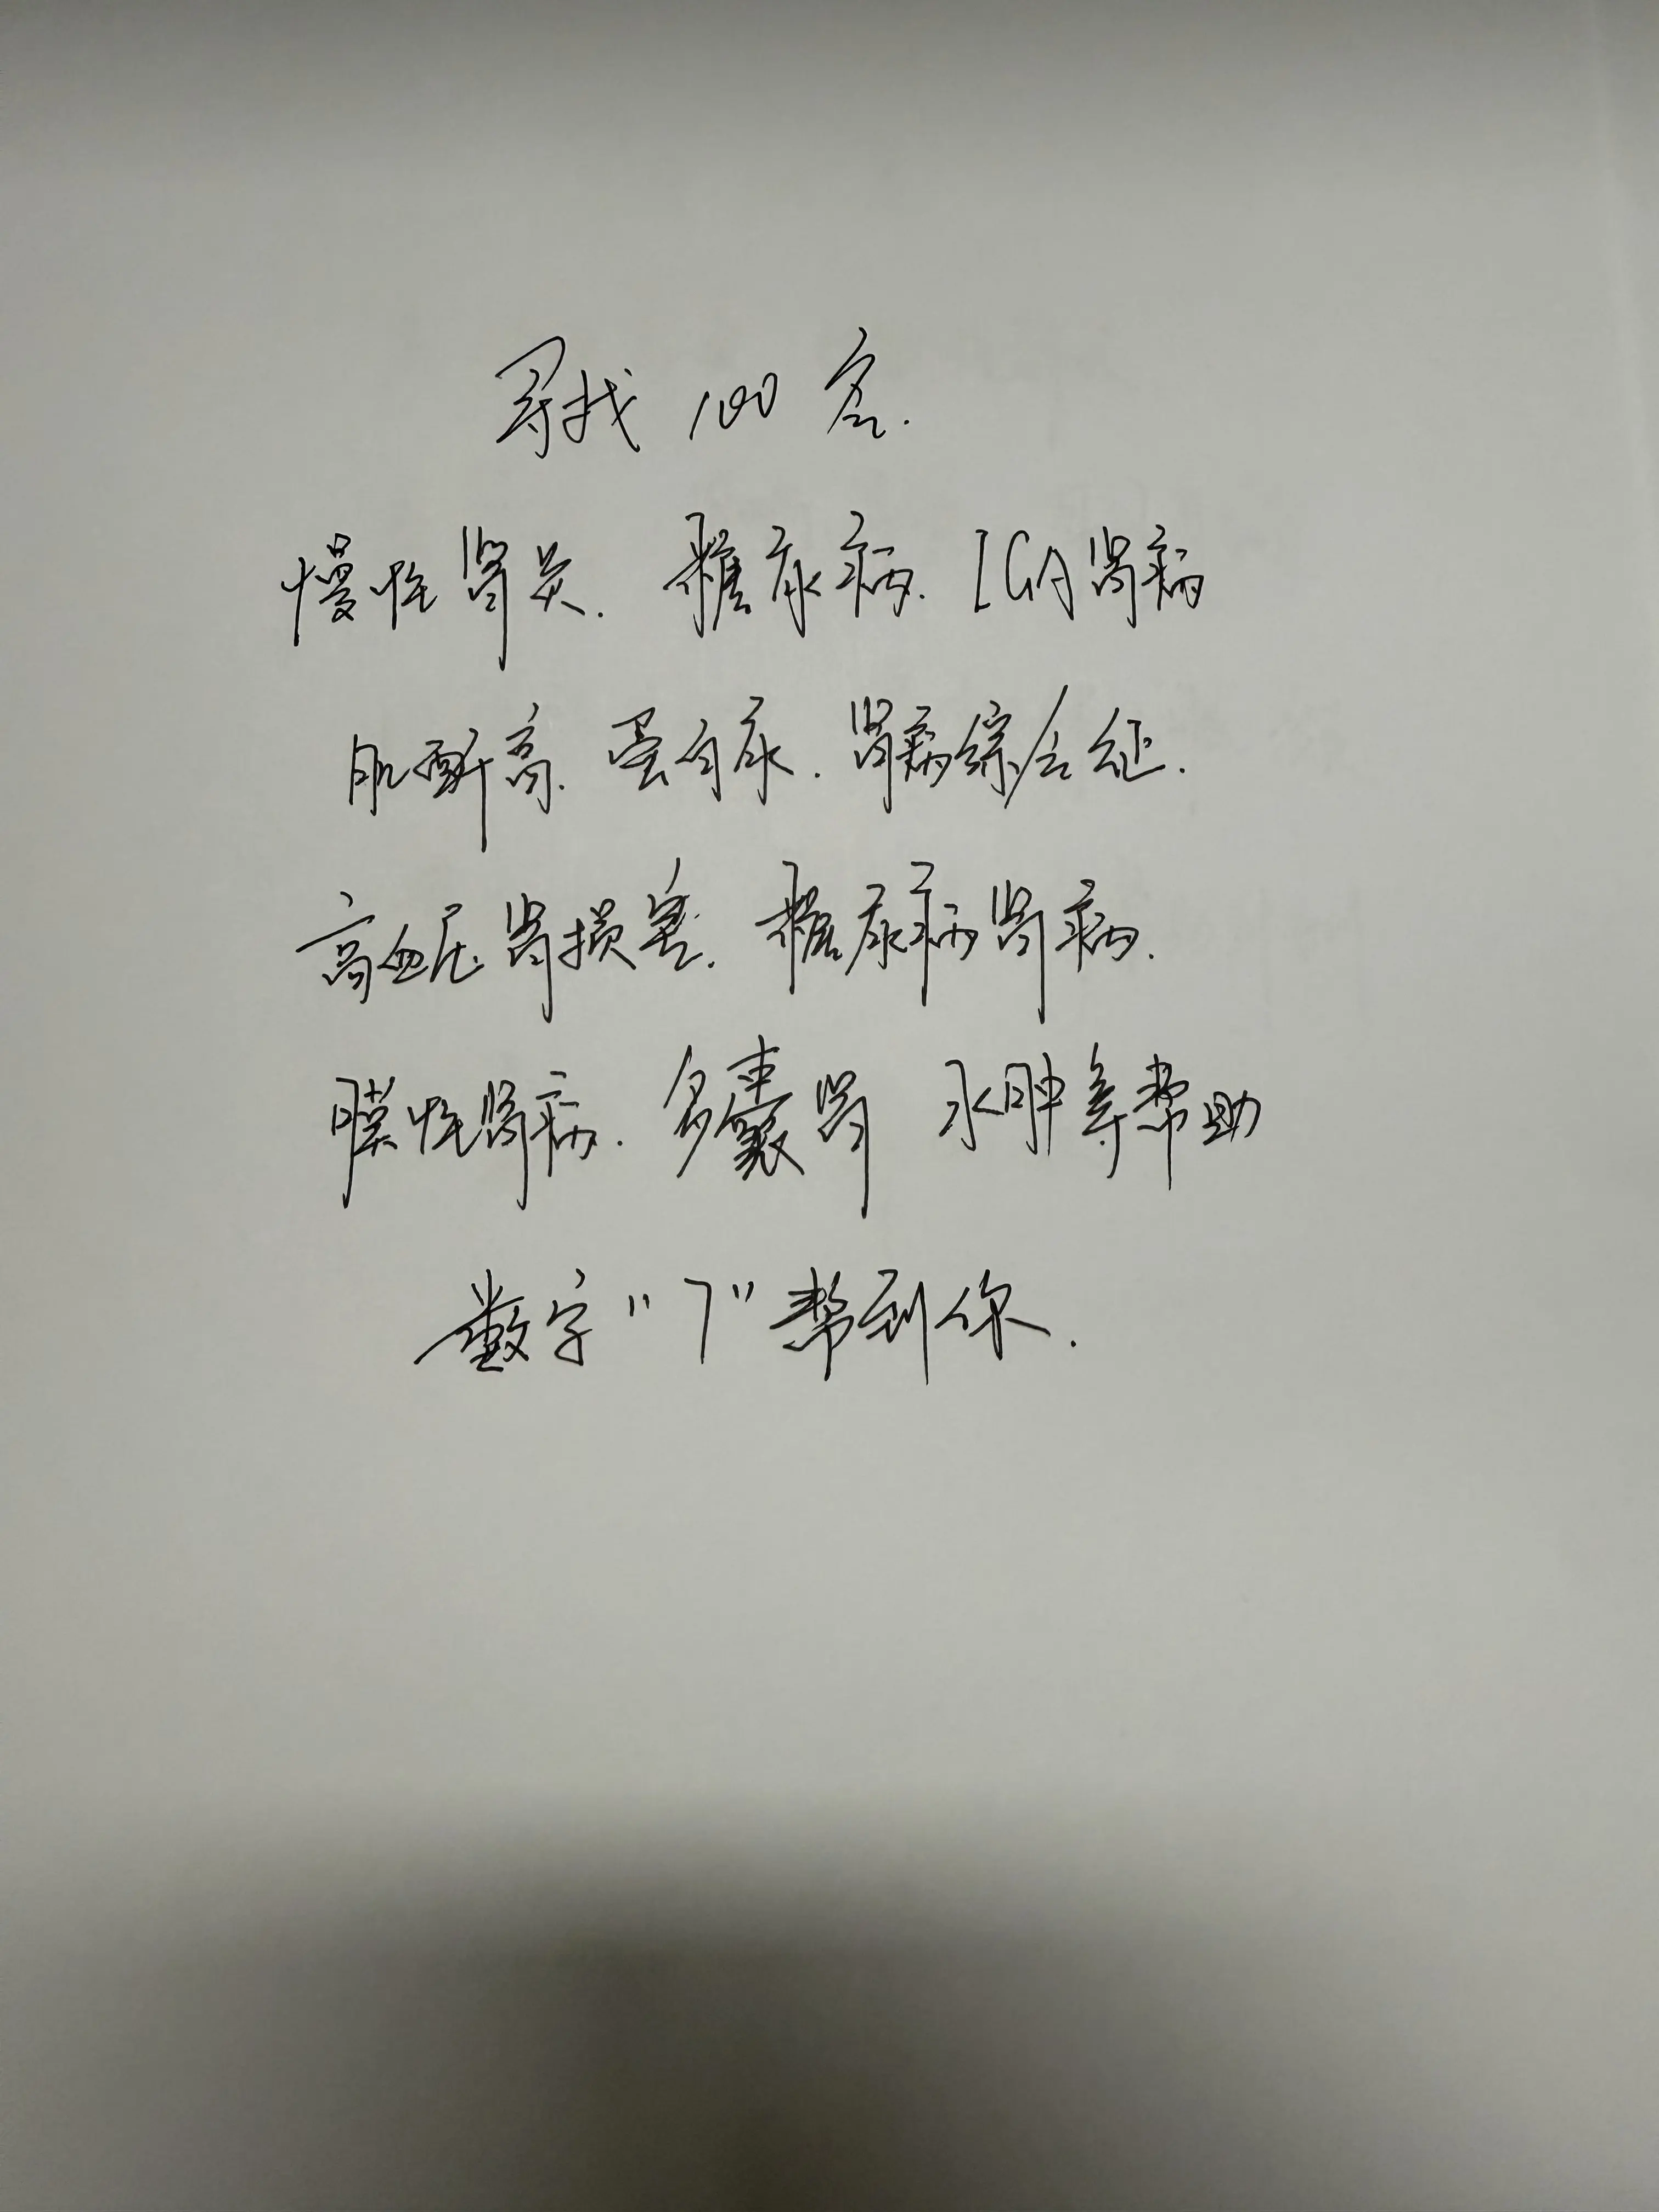 寻找 100 名.
慢性肾炎. 糖尿病. IGA肾病
肌酐高. 蛋白尿. 肾病综合征.
高血压肾损害. 糖尿病肾病.
膜性肾病. 多囊肾 水肿等帮助
数字“7”帮到你.